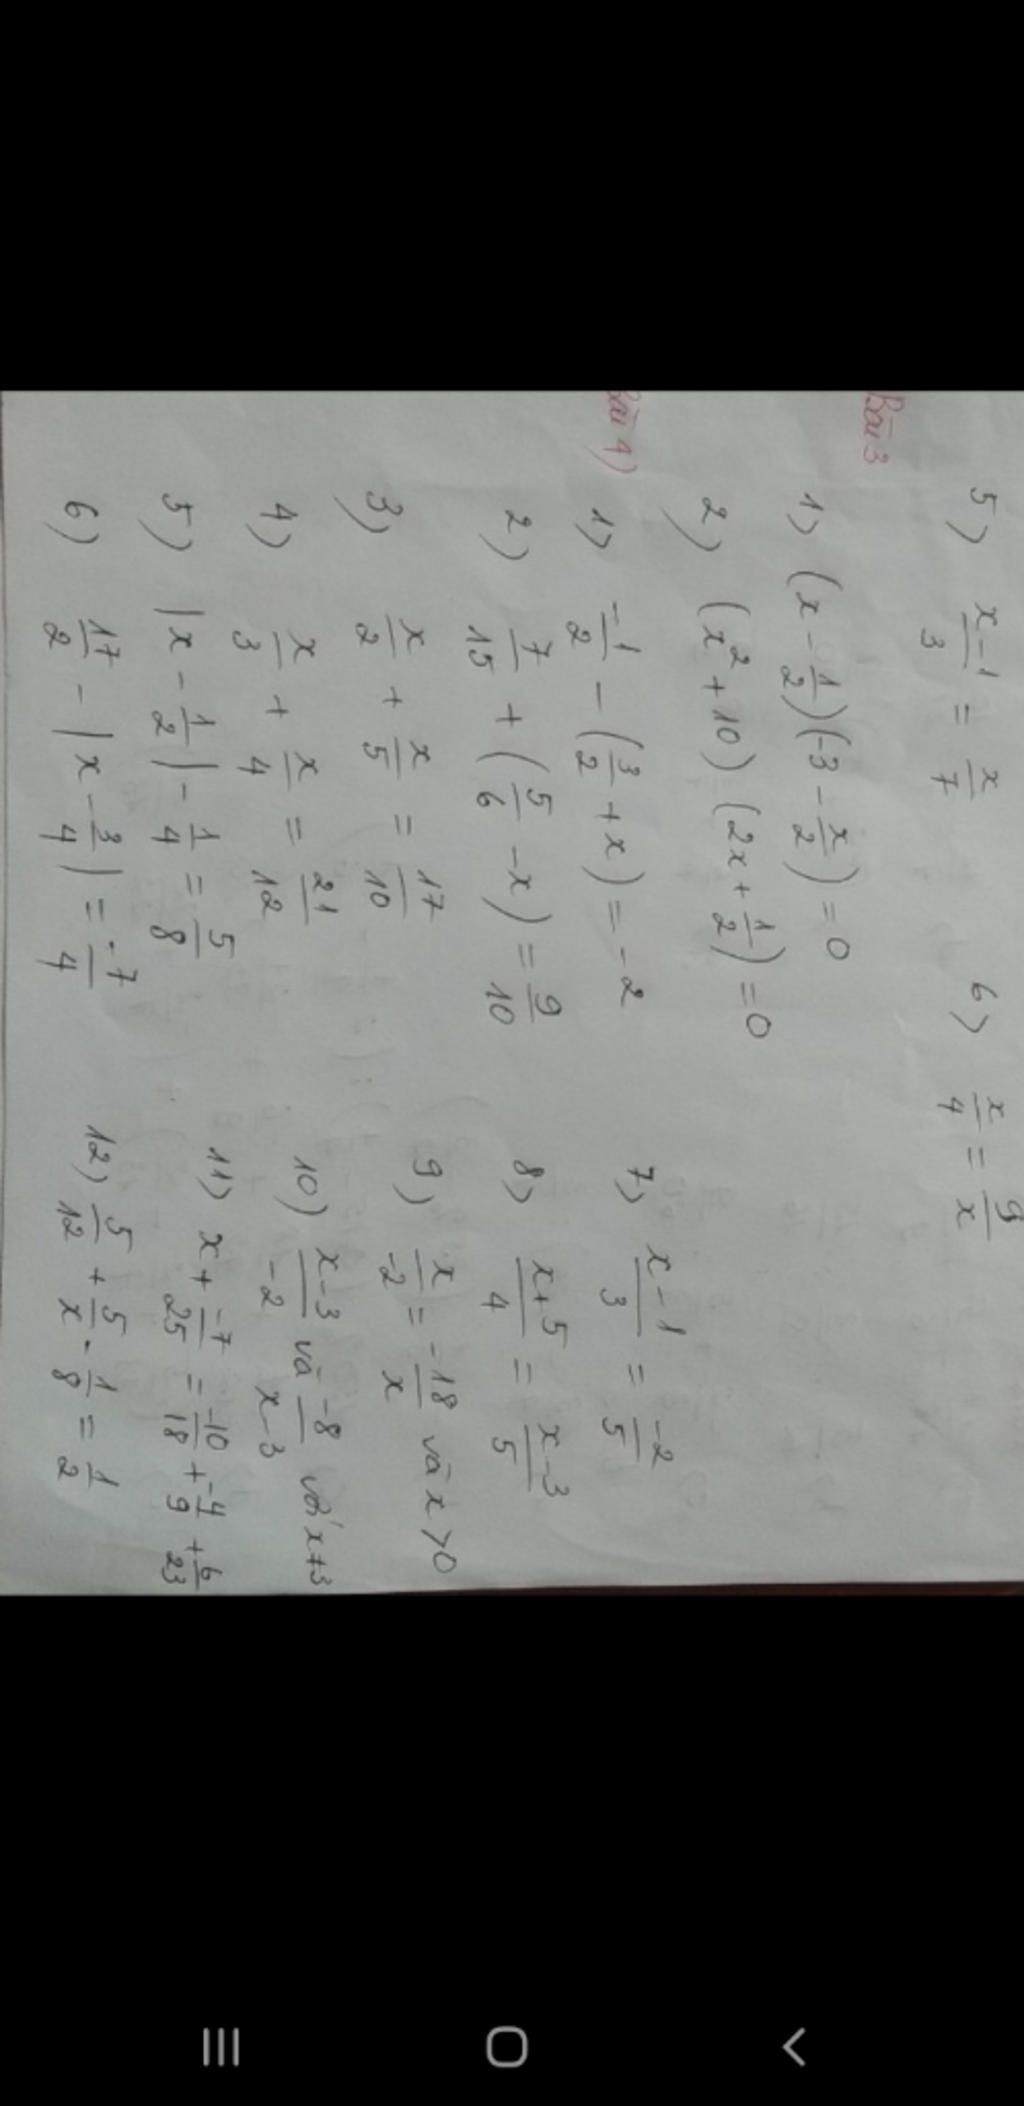 5) x-1/3 = x/7
6) x/4 = 9/x
Bài 3
1) (x - 1/2)(-3 - x/2) = 0
2) (x² + 10)(2x + 1/2) = 0
Bài 4)
1) -1/2 - (3/2 + x) = -2
2) 7/15 + (5/6 - x) = 9/10
3) x/2 + x/5 = 17/10
4) x/3 + x/4 = 21/12
5) |x - 1/2| - 1/4 = 5/8
6) 17/2 - |x - 3/4| = -7/4
7) x-1/3 = -2/5
8) x+5/4 = x-3/5
9) x/-2 = -18/x và x > 0
10) x-3/-2 và -8/x-3 với x+3
11) x + -7/25 = -10/18 + -4/9 + 6/23
12) 5/12 + 5/x - 1/8 = 1/2